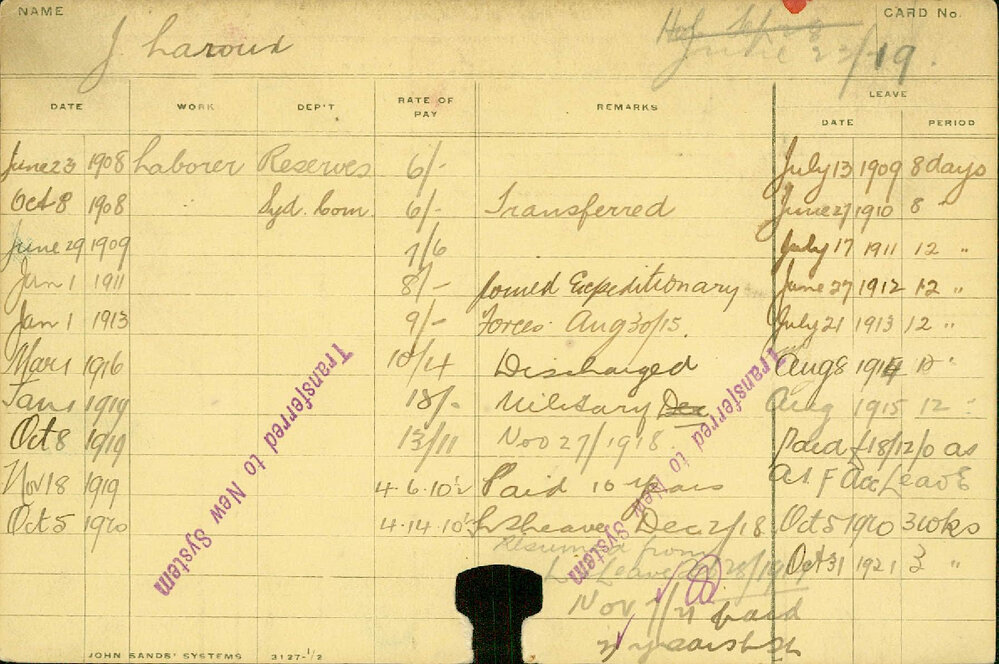 NAME
CARD No.
J. Laroux
June 23/19.
DATE WORK DEP'T RATE OF PAY REMARKS LEAVE
DATE PERIOD
June 23 1908 Laborer Reserves 6/- July 13 1909 8 days
Oct 8 1908 Syd. Com. 6/- Transferred June 27 1910 8 "
June 29 1909 7/6 July 17 1911 12 "
Jan 1 1911 8/- Joined Expeditionary June 27 1912 12 "
Jan 1 1913 9/- Forces Aug 30/15. July 21 1913 12 "
Mar 1 1916 10/4 Discharged Aug 8 1914 12 "
Jan 1 1919 13/- Military Dec Aug 1915 12 "
Oct 8 1919 13/11 Nov 27/1918 Paid £18/12/0 as
Nov 18 1919 4.6.10½ Paid 10 years A.I.F Acc Leave
Oct 5 1920 4.14.10½ LS leave Dec 2/18 Oct 5 1920 3 wks
Resumed from Oct 31 1921 3 "
Leave
Nov 1/21 paid
Transferred to New System
Transferred to New System
JOHN SANDS' SYSTEMS 3127-½